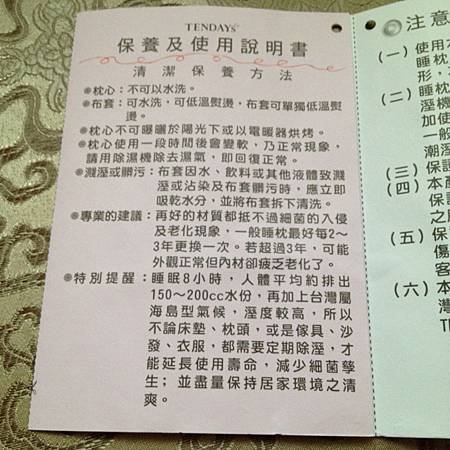 TENDAYs
保養及使用說明書
清潔保養方法
●枕心：不可以水洗。
●布套：可水洗，可低溫熨燙，布套可單獨低溫熨
燙。
●枕心不可曝曬於陽光下或以電暖器烘烤。
●枕心使用一段時間後會變軟，乃正常現象，
請用除濕機除去濕氣，即回復正常。
●濺溼或髒污：布套因水、飲料或其他液體致濺
溼或沾染及布套髒污時，應立即
吸乾水分，並將布套拆下清洗。
●專業的建議：再好的材質都抵不過細菌的入侵
及老化現象，一般睡枕最好每2～
3年更換一次。若超過3年，可能
外觀正常但內材卻疲乏老化了。
●特別提醒：睡眠8小時，人體平均約排出
150～200cc水份，再加上台灣屬
海島型氣候，溼度較高，所以
不論床墊、枕頭，或是傢具、沙
發、衣服，都需要定期除溼，才
能延長使用壽命，減少細菌孳
生；並盡量保持居家環境之清
爽。
注意
（一）使用
睡枕
形，
（二）睡枕
溼機
加使
一般
潮溼
（三）保
（四）本
保
之
（五）保
傷
客
（六）本
灣
T